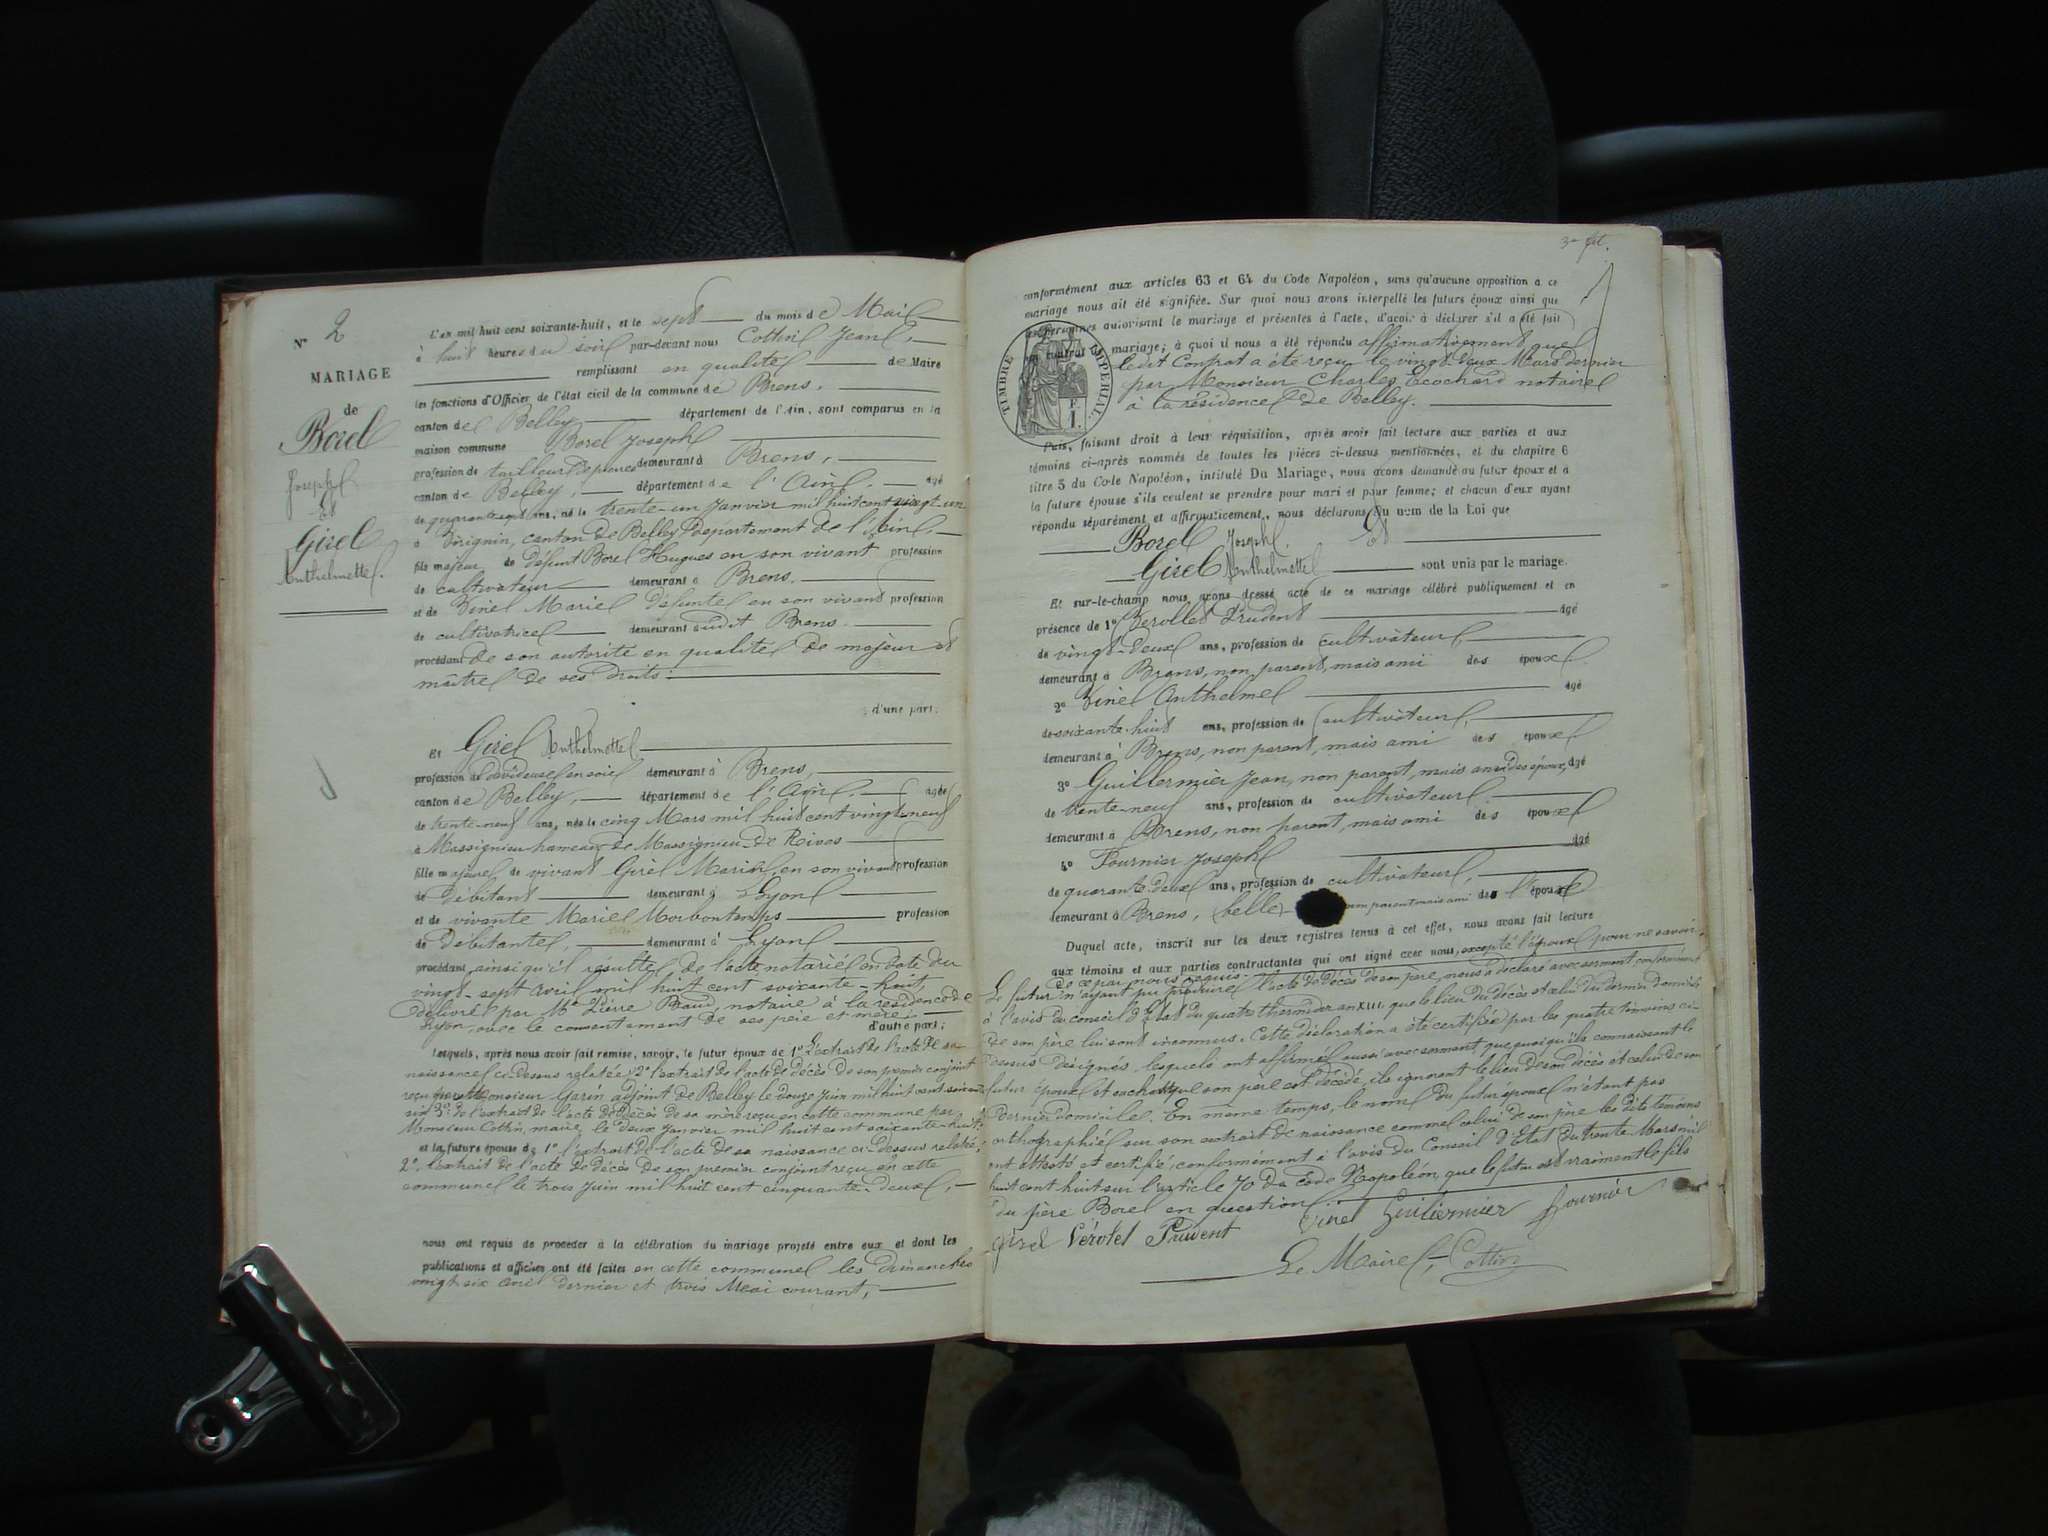 N° 2
MARIAGE
de
Borel
Joseph
Et
Girel
Anthelmette.
L'an mil huit cent soixante-huit, et le sept du mois de Mai
à huit heures du soir par-devant nous Cottin Jean,
remplissant en qualité de Maire
les fonctions d'Officier de l'état civil de la commune de Brens,
canton de Belley département de l'Ain, sont comparus en la
maison commune Borel Joseph
profession de tailleur de pierres demeurant à Brens,
canton de Belley, département de l'Ain, âgé
de quarante sept ans, né le trente-un Janvier mil huit cent vingt-un
à Virignin, canton de Belley Département de l'Ain,
fils majeur de défunt Borel Hugues en son vivant profession
de cultivateur demeurant à Brens.
et de Vinel Marie défunte en son vivant profession
de cultivatrice demeurant audit Brens.
procédant de son autorité en qualité de majeur et
maître de ses droits.
d'une part;
Et Girel Anthelmette
profession de dévideuse en soie demeurant à Brens,
canton de Belley, département de l'Ain, âgée
de trente-neuf ans, née le cinq Mars mil huit cent vingt-neuf
à Massignieu hameau de Massignieu-de Rives
fille majeure de vivant Girel Marin, en son vivant profession
de débitant demeurant à Lyon
et de vivante Marie Morbontemps profession
de débitante, demeurant à Lyon
procédant ainsi qu'il résulte de l'acte notarié en date du
vingt-sept avril mil huit cent soixante-huit,
délivré par Me Pierre Baud, notaire à la résidence de
Lyon, avec le consentement de ses père et mère,
d'autre part;
Lesquels, après nous avoir fait remise, savoir, le futur époux de 1° L'extrait de l'acte de sa
naissance ci-dessus relatée, 2° l'extrait de l'acte de décès de son premier conjoint
reçu par Monsieur Garin adjoint de Belley le douze Juin mil huit cent soixante
six 3° de l'extrait de l'acte de décès de sa mère reçu en cette commune par
Monsieur Cottin, maire, le deux Janvier mil huit cent soixante-huit;
et la future épouse de 1° l'extrait de l'acte de sa naissance ci-dessus relatée;
2° l'extrait de l'acte de décès de son premier conjoint reçu en cette
commune le trois Juin mil huit cent cinquante-deux,
nous ont requis de procéder à la célébration du mariage projeté entre eux et dont les
publications et affiches ont été faites en cette commune les dimanches
vingt six avril dernier et trois Mai courant,
conformément aux articles 63 et 64 du Code Napoléon, sans qu'aucune opposition à ce
mariage nous ait été signifiée. Sur quoi nous avons interpellé les futurs époux ainsi que
les personnes autorisant le mariage et présentes à l'acte, d'avoir à déclarer s'il a été fait
contrat de mariage; à quoi il nous a été répondu affirmativement que
ledit Contrat a été reçu le vingt-deux Mars dernier
par Monsieur Charles Ecochard notaire
à la résidence de Belley.
TIMBRE IMPERIAL
F.
1.
Puis, faisant droit à leur réquisition, après avoir fait lecture aux parties et aux
témoins ci-après nommés de toutes les pièces ci-dessus mentionnées, et du chapitre 6
titre 5 du Code Napoléon, intitulé Du Mariage, nous avons demandé au futur époux et à
la future épouse s'ils veulent se prendre pour mari et pour femme; et chacun d'eux ayant
répondu séparément et affirmativement, nous déclarons au nom de la Loi que
Borel Joseph Et
Girel Anthelmette sont unis par le mariage.
Et sur-le-champ nous avons dressé acte de ce mariage célébré publiquement et en
présence de 1° Verollet Prudent âgé
de vingt-deux ans, profession de cultivateur,
demeurant à Brens, non parent, mais ami des époux
2° Vinel Anthelme âgé
de soixante huit ans, profession de cultivateur,
demeurant à Brens, non parent, mais ami des époux
3° Guillermier Jean, non parent, mais ami des époux, âgé
de trente-neuf ans, profession de cultivateur
demeurant à Brens, non parent, mais ami des époux
4° Fournier Joseph âgé
de quarante deux ans, profession de cultivateur,
demeurant à Brens, non parent mais ami de l'époux
Duquel acte, inscrit sur les deux registres tenus à cet effet, nous avons fait lecture
aux témoins et aux parties contractantes qui ont signé avec nous, excepté l'époux pour ne savoir,
de ce par nous requis.
Le futur n'ayant pu produire l'acte de décès de son père, nous a déclaré avec serment conformément
à l'avis du conseil d'Etat du quatre thermidor an XIII, que le lieu du décès et celui du dernier domicile
de son père lui sont inconnus. Cette déclaration a été certifiée par les quatre témoins ci-
dessus désignés, lesquels ont affirmé aussi avec serment, que quoiqu'ils connaissent le
futur époux et sachent que son père est décédé, ils ignorent le lieu de son décès et celui de son
dernier domicile. En même temps, le nom du futur époux n'étant pas
orthographié sur son extrait de naissance comme celui de son père les dits témoins
ont attesté et certifié, conformément à l'avis du Conseil d'Etat du trente Mars mil
huit cent huit sur l'article 70 du Code Napoléon, que le futur est vraiment le fils
du père Borel en question.
Vinel Guillermier Fournier
girel Vérolet Prudent
Le Maire, Cottin